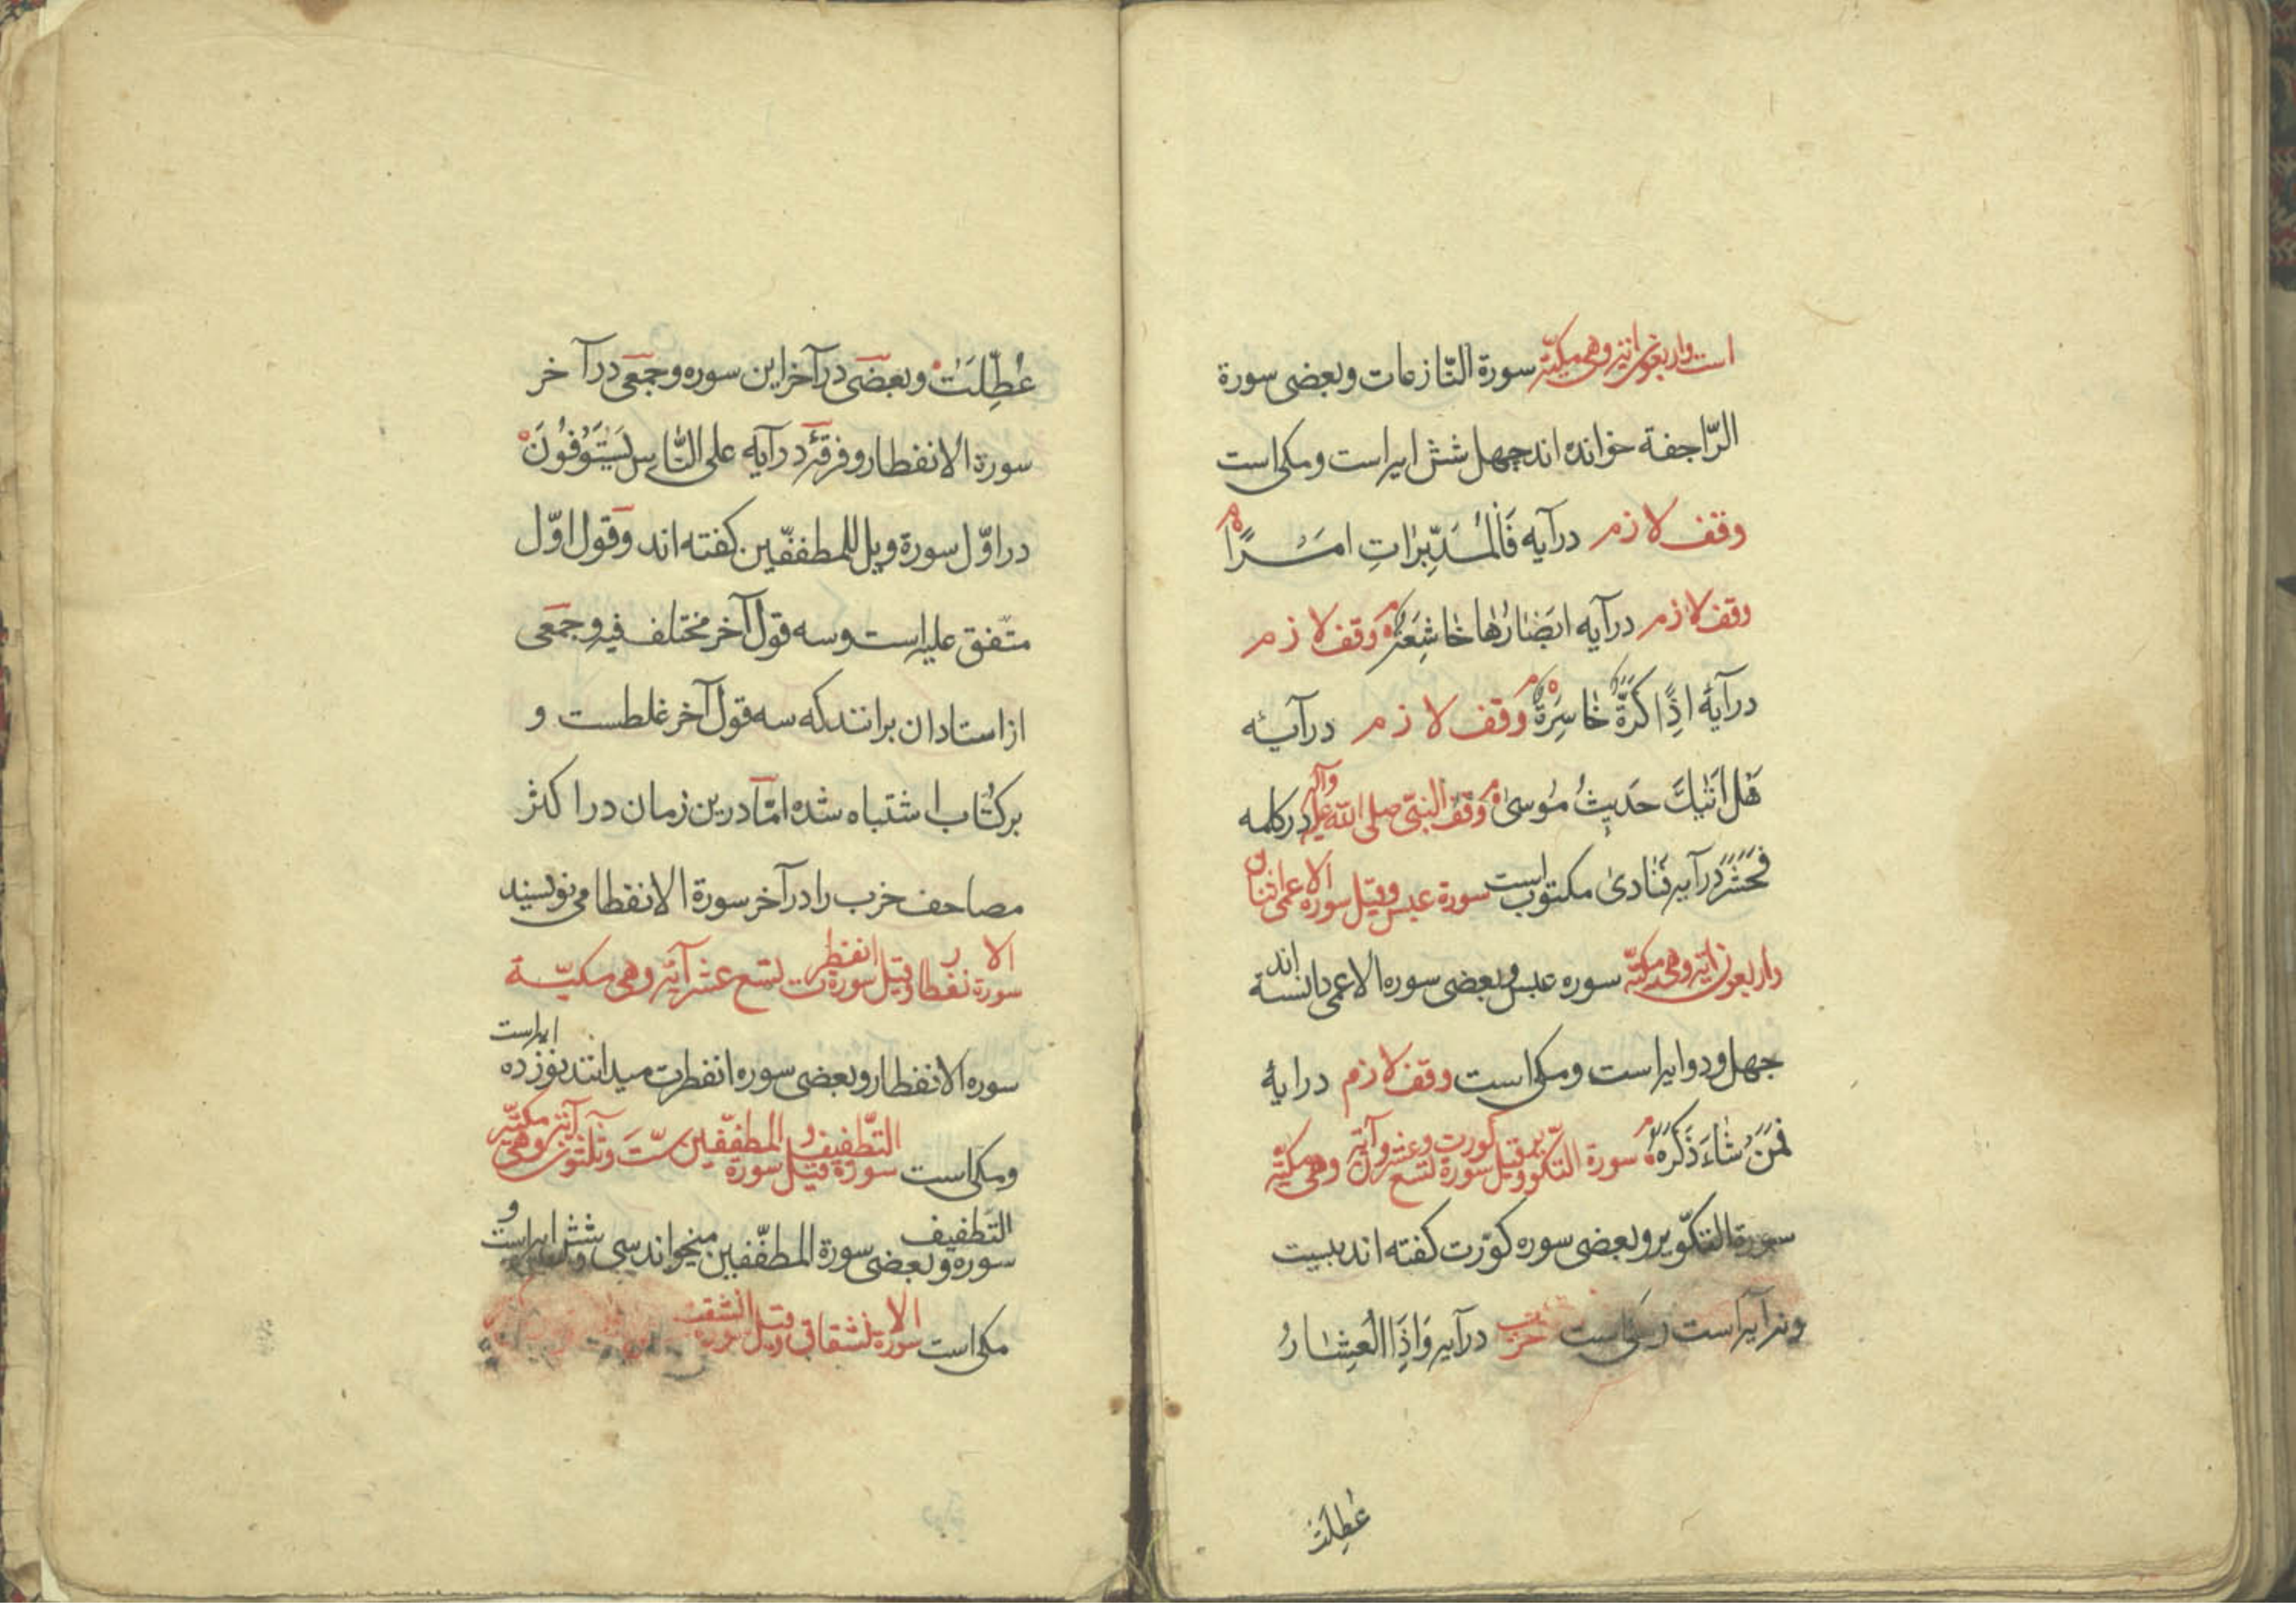 است واربعون آیة وهی مکیّة سورة النّازعات وبعضی سورة
الرّاجفة خوانده اند چهل شش ایه است ومکی است
وقف لازم درآیه فَالْمُدَبِّرٰاتِ امَْرًا م
وقف لازم درآیه ابَصْٰارُهٰا خٰاشِعَةٌ م وقف لازم
درآیهٔ اذًِا كَرَّةٌ خٰاسِرَةٌ م وقف لازم درآیه
هَل اَتٰیكَ حَدیثُ مُوسیٰ م وقف النبّی صلی الله علیه وآله درکلمه
فَحَشَرَ درآیه فَنٰادیٰ مکتوب است سورة عبس وقیل سوره الاعمی اثنان
واربعون آیة وهی مکیّة سوره عبس وبعضی سوره الاعمی دانسته اند
چهل ودو ایه است ومکی است وقف لازم درایهٔ
فَمَنْ شٰاءَ ذَكَرَهُ م سورة التکویر وقیل سورة کورت تسع وعشرون آیة وهی مکیّة
سورة التکوّیر وبعضی سوره کوّرت کفته اند بیست
ونه آیه است ومکی است حزب درآیه وَاِذَا الْعِشٰارُ
عُطِّلَتْ
عُطِّلَتْ وبعضی درآخر این سوره وجمَعی درآخر
سورة الانفطار وفرقهٔ درآیه علی النّٰاسِ یَسْتَوْفُونَ
دراوّل سورة ویل للمطففّین کفته اند وقول اوّل
متّفق علیه است وسه قول آخر مختلف فیه وجمَعی
از استادان برانند که سه قول آخر غلطست و
برکتّاب اشتباه شده امّا درین زمان دراکثر
مصاحف خرب را درآخر سورة الانفطا می نویسند
سورة الانفطار وقیل سورة انفطرت تسع عشر آیة وهی مکیّة
سوره الانفطار وبعضی سوره انفطرت میدانند نوزده ایه است
ومکی است سورة التّطفیف وقیل سورة المطفّفین ستّ وثلثون آیة وهی مکیّة
سوره التّطفیف وبعضی سورة المطفّفین میخوانند سی شش ایه است و
مکی است سورة الانشقاق وقیل